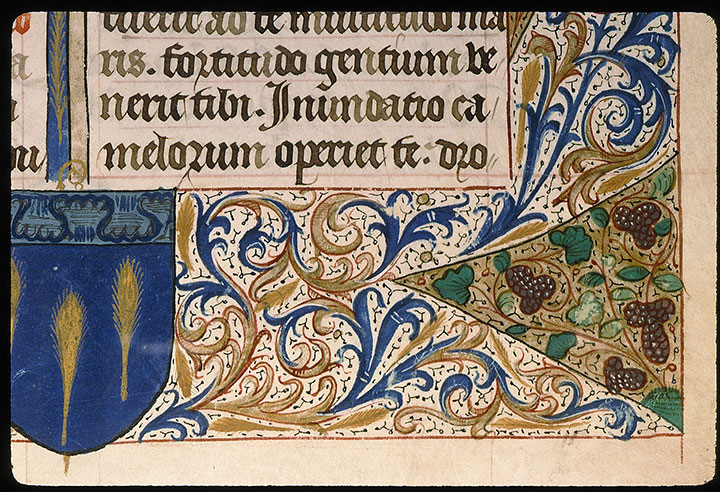 tuerit ad te multitudo ma
ris. fortitudo gentium ve
nerit tibi. Inundatio ca
melorum operiet te. dro